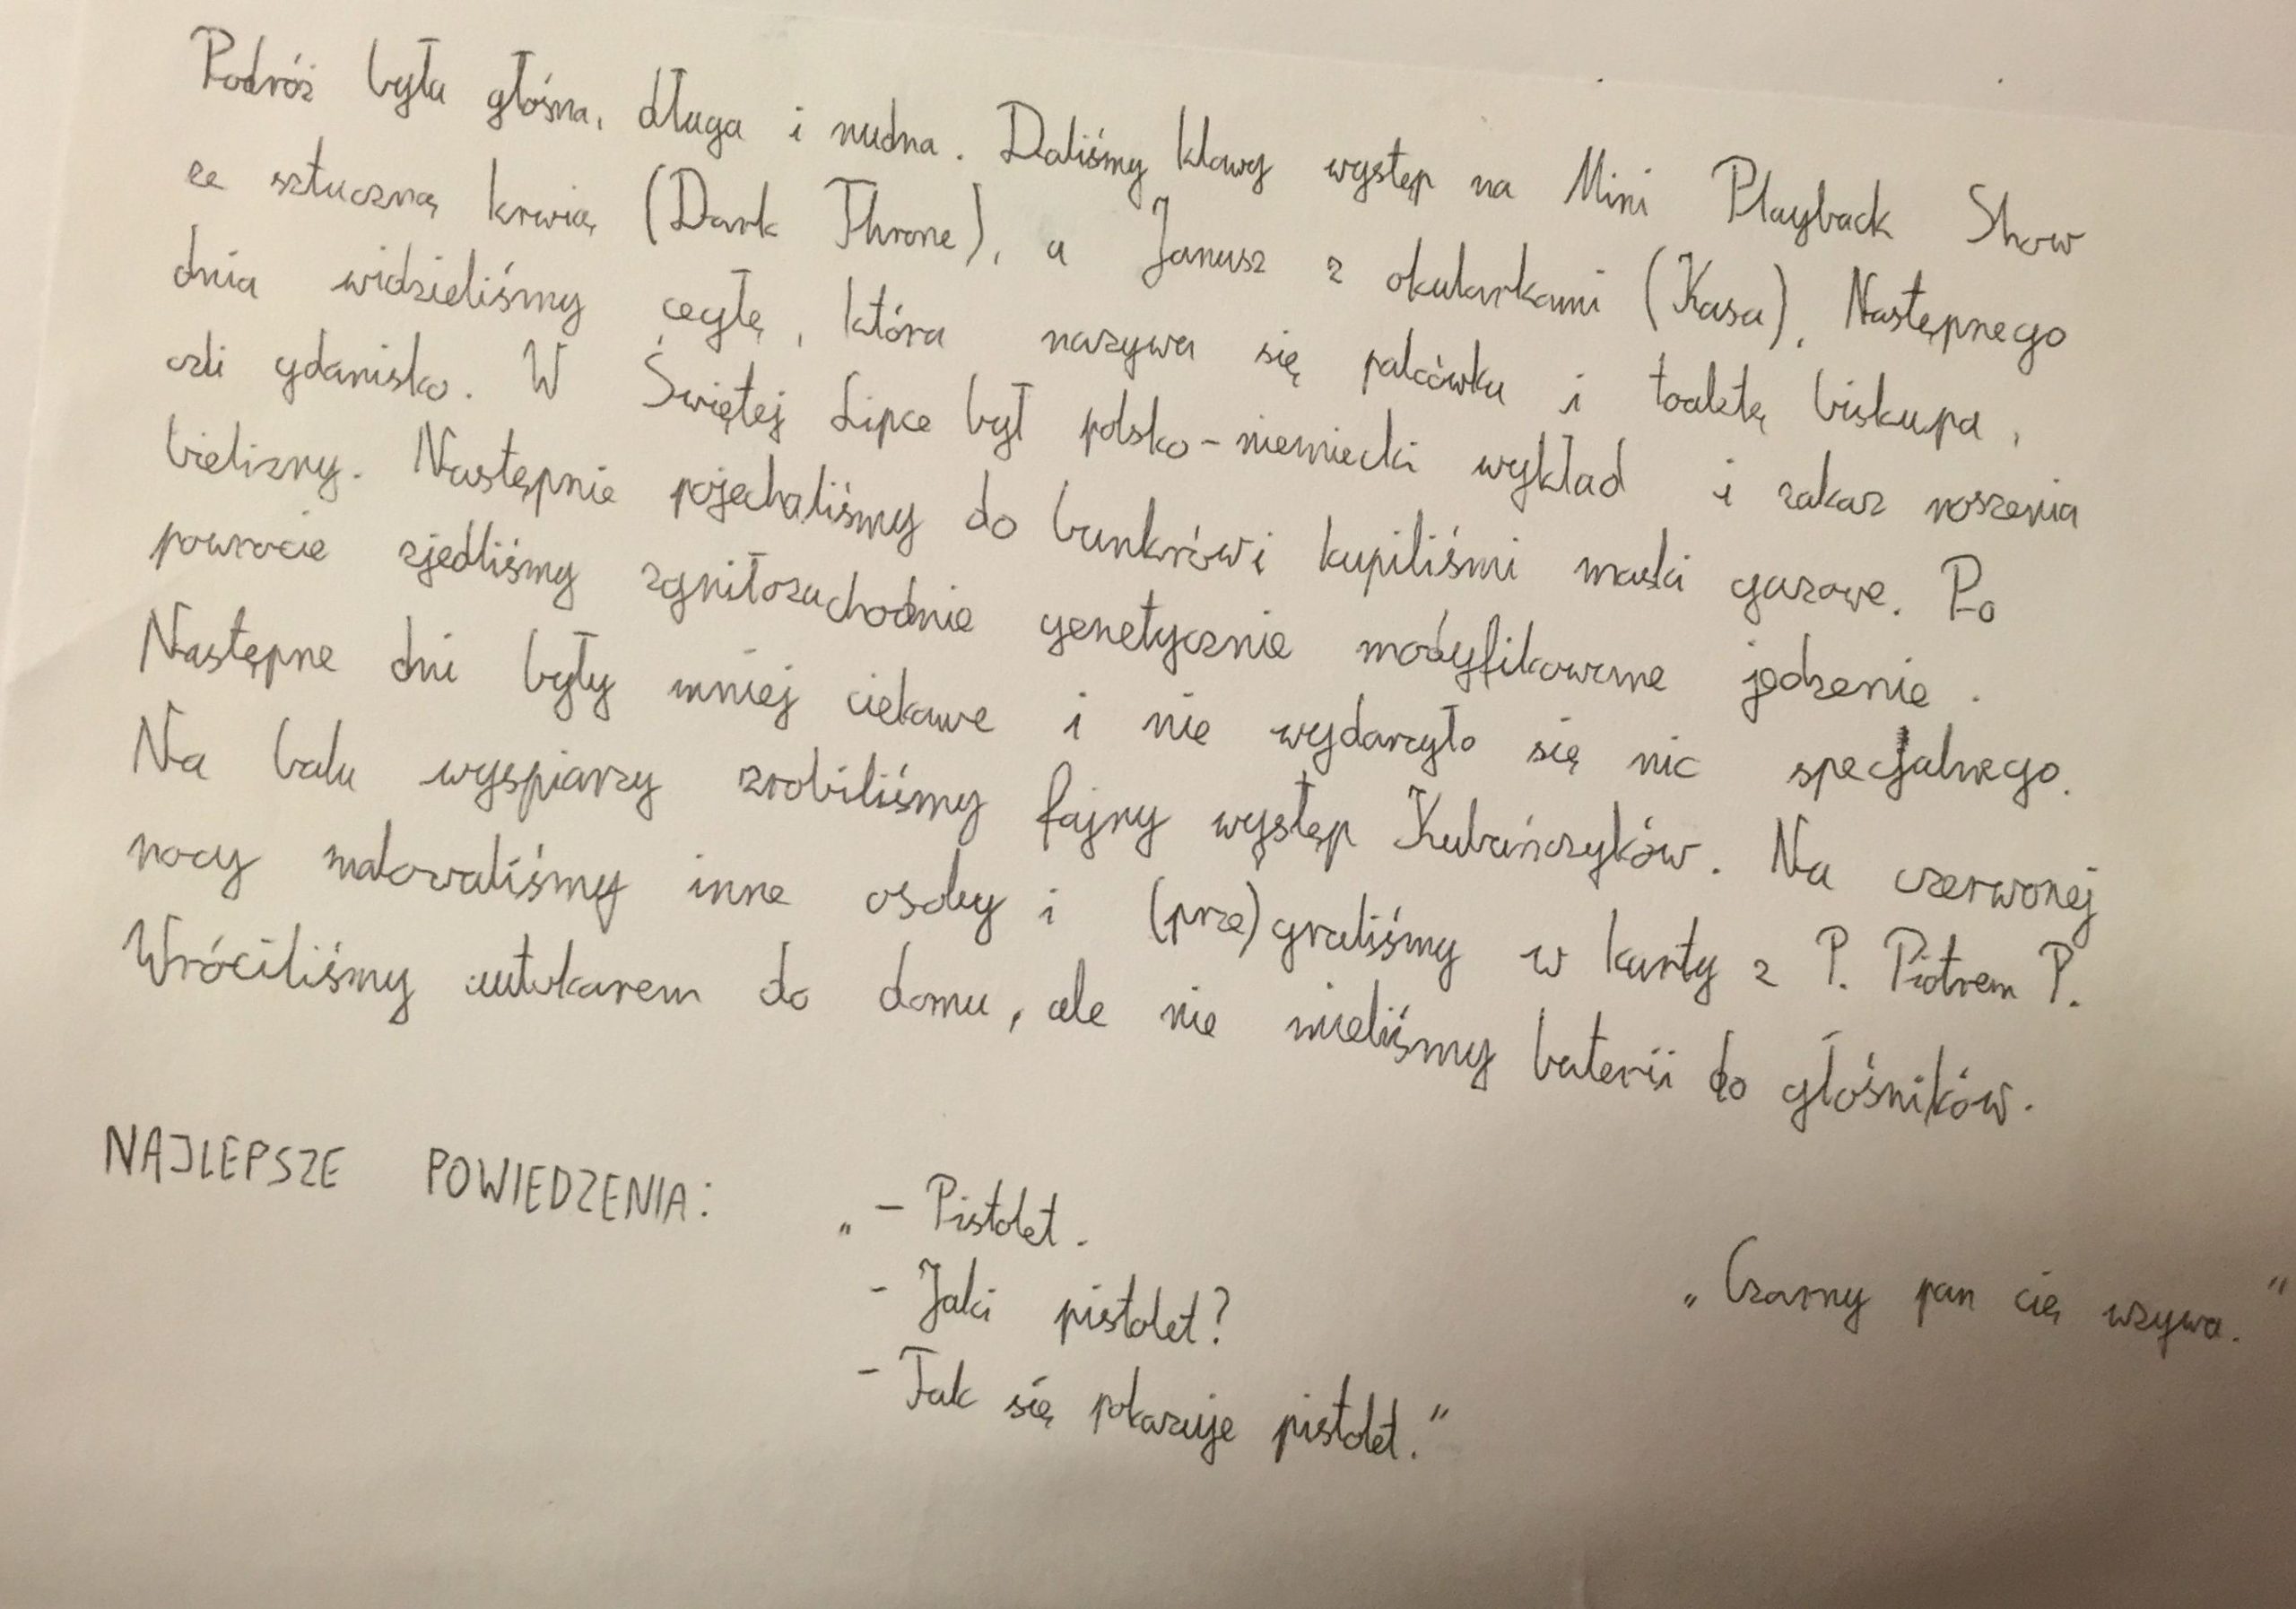 Podróż była głośna, długa i nudna. Daliśmy klawy występ na Mini Playback Show
ze sztuczną krwią (Dark Throne), a Janusz z okularkami (Kasa). Następnego
dnia widzieliśmy cegłę, która nazywa się palcówka i toaletę biskupa,
czli gdanisko. W Świętej Lipce był polsko-niemiecki wykład i zakaz noszenia
bielizny. Następnie pojechaliśmy do bunkrów i kupiliśmi maski gazowe. Po
powrocie zjedliśmy zgniłozachodnie genetycznie modyfikowane jedzenie.
Następne dni były mniej ciekawe i nie wydarzyło się nic specjalnego.
Na balu wyspiarzy zrobiliśmy fajny występ Kubańczyków. Na czerwonej
nocy malowaliśmy inne osoby i (prze)graliśmy w karty z P. Piotrem P.
Wróciliśmy autokarem do domu, ale nie mieliśmy baterii do głośników.
NAJLEPSZE POWIEDZENIA: „- Pistolet.
- Jaki pistolet?
- Tak się pokazuje pistolet."
„Czarny pan cię wzywa."